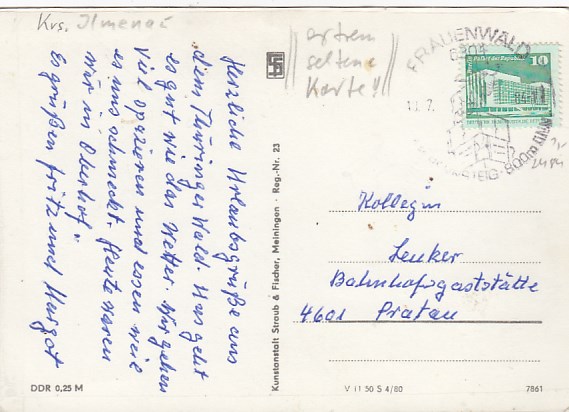 Krs. Ilmenau
extrem
seltene
Karte!!
Herzliche Urlaubsgrüße aus
dem Thüringer Wald. Uns geht
es gut wie das Wetter. Wir gehen
viel spazieren und essen weil
es uns schmeckt. Heute waren
wir in Oberhof.
Es grüßen Fritz und Margot
DDR 0,25 M
Kunstanstalt Straub & Fischer, Meiningen · Reg.-Nr. 23
FRAUENWALD
6304
10
DDR
Kollegin
Leuker
Bahnhofsgaststätte
4601 Pratau
V 11 50 S 4/80
7861